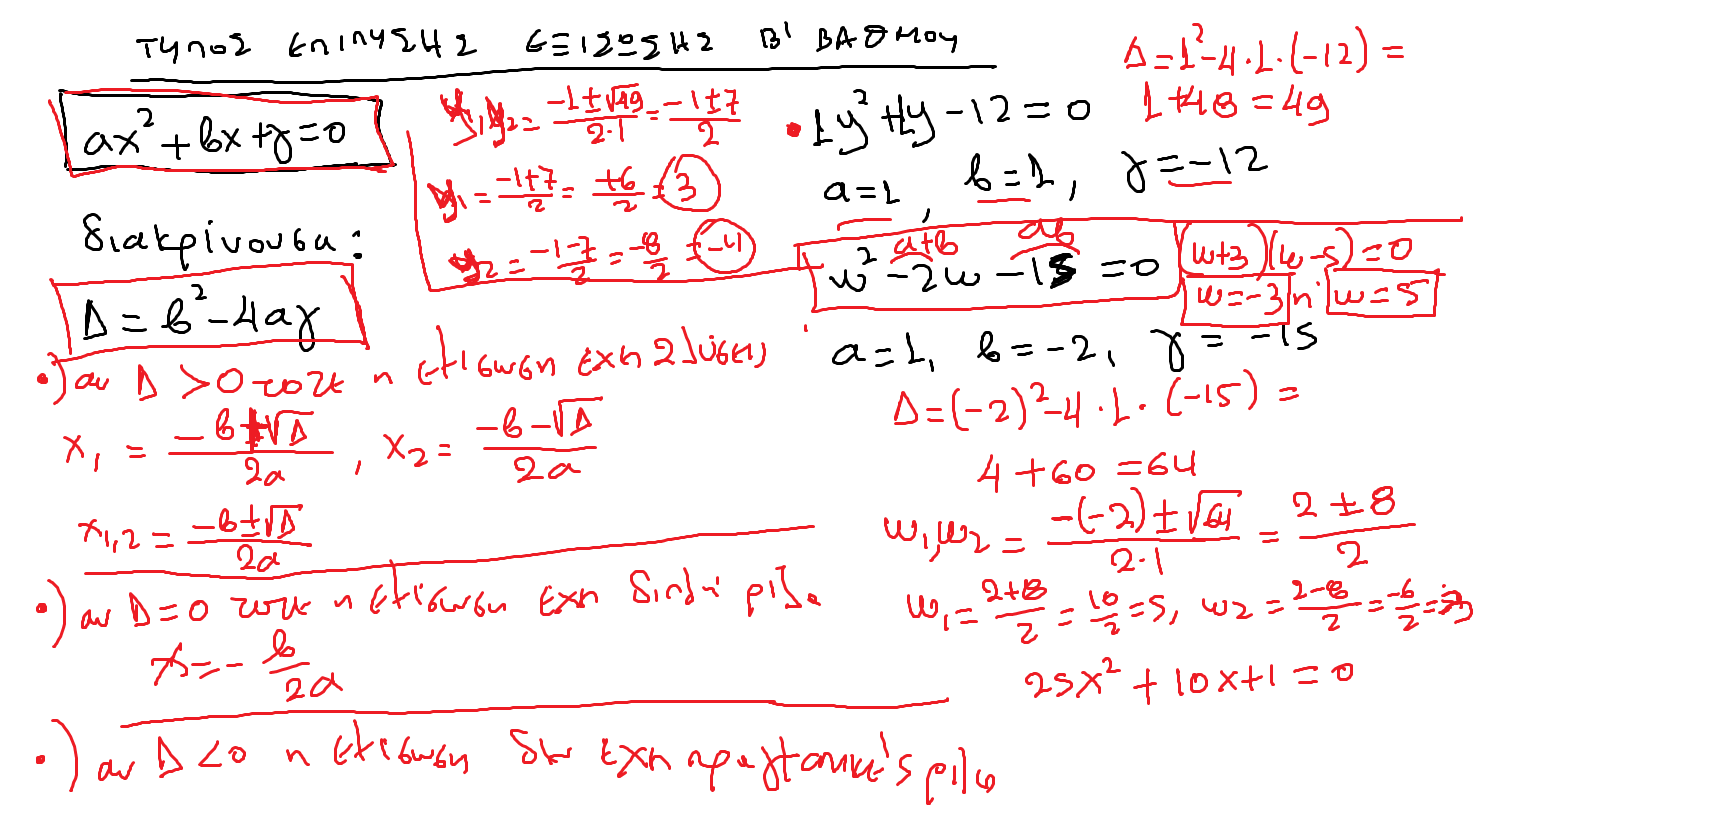 ΤΥΠΟΣ ΕΠΙΛΥΣΗΣ ΕΞΙΣΩΣΗΣ Β' ΒΑΘΜΟΥ
αx² + βx + γ = 0
διακρίνουσα:
Δ = β² - 4αγ
•) αν Δ > 0 τοτε η εξισωση εχει 2 λύσεις
x₁ = (-β + √Δ)/2α , x₂ = (-β - √Δ)/2α
x₁,₂ = (-β ± √Δ)/2α
•) αν Δ = 0 τοτε η εξίσωση εχει διπλή ρίζα
x = - β/2α
•) αν Δ < 0 η εξίσωση δεν εχει πραγματικές ρίζες
y₁,y₂ = (-1 ± √49)/2·1 = (-1 ± 7)/2
y₁ = (-1+7)/2 = +6/2 = 3
y₂ = (-1-7)/2 = -8/2 = -4
• 1y² + 1y - 12 = 0
Δ = 1² - 4·1·(-12) =
1 + 48 = 49
α = 1, β = 1, γ = -12
α+β αβ
w² - 2w - 15 = 0
(w+3)(w-5) = 0
w = -3 ή w = 5
α = 1, β = -2, γ = -15
Δ = (-2)² - 4·1·(-15) =
4 + 60 = 64
w₁,w₂ = (-(-2) ± √64)/2·1 = (2 ± 8)/2
w₁ = (2+8)/2 = 10/2 = 5, w₂ = (2-8)/2 = -6/2 = -3
25x² + 10x + 1 = 0